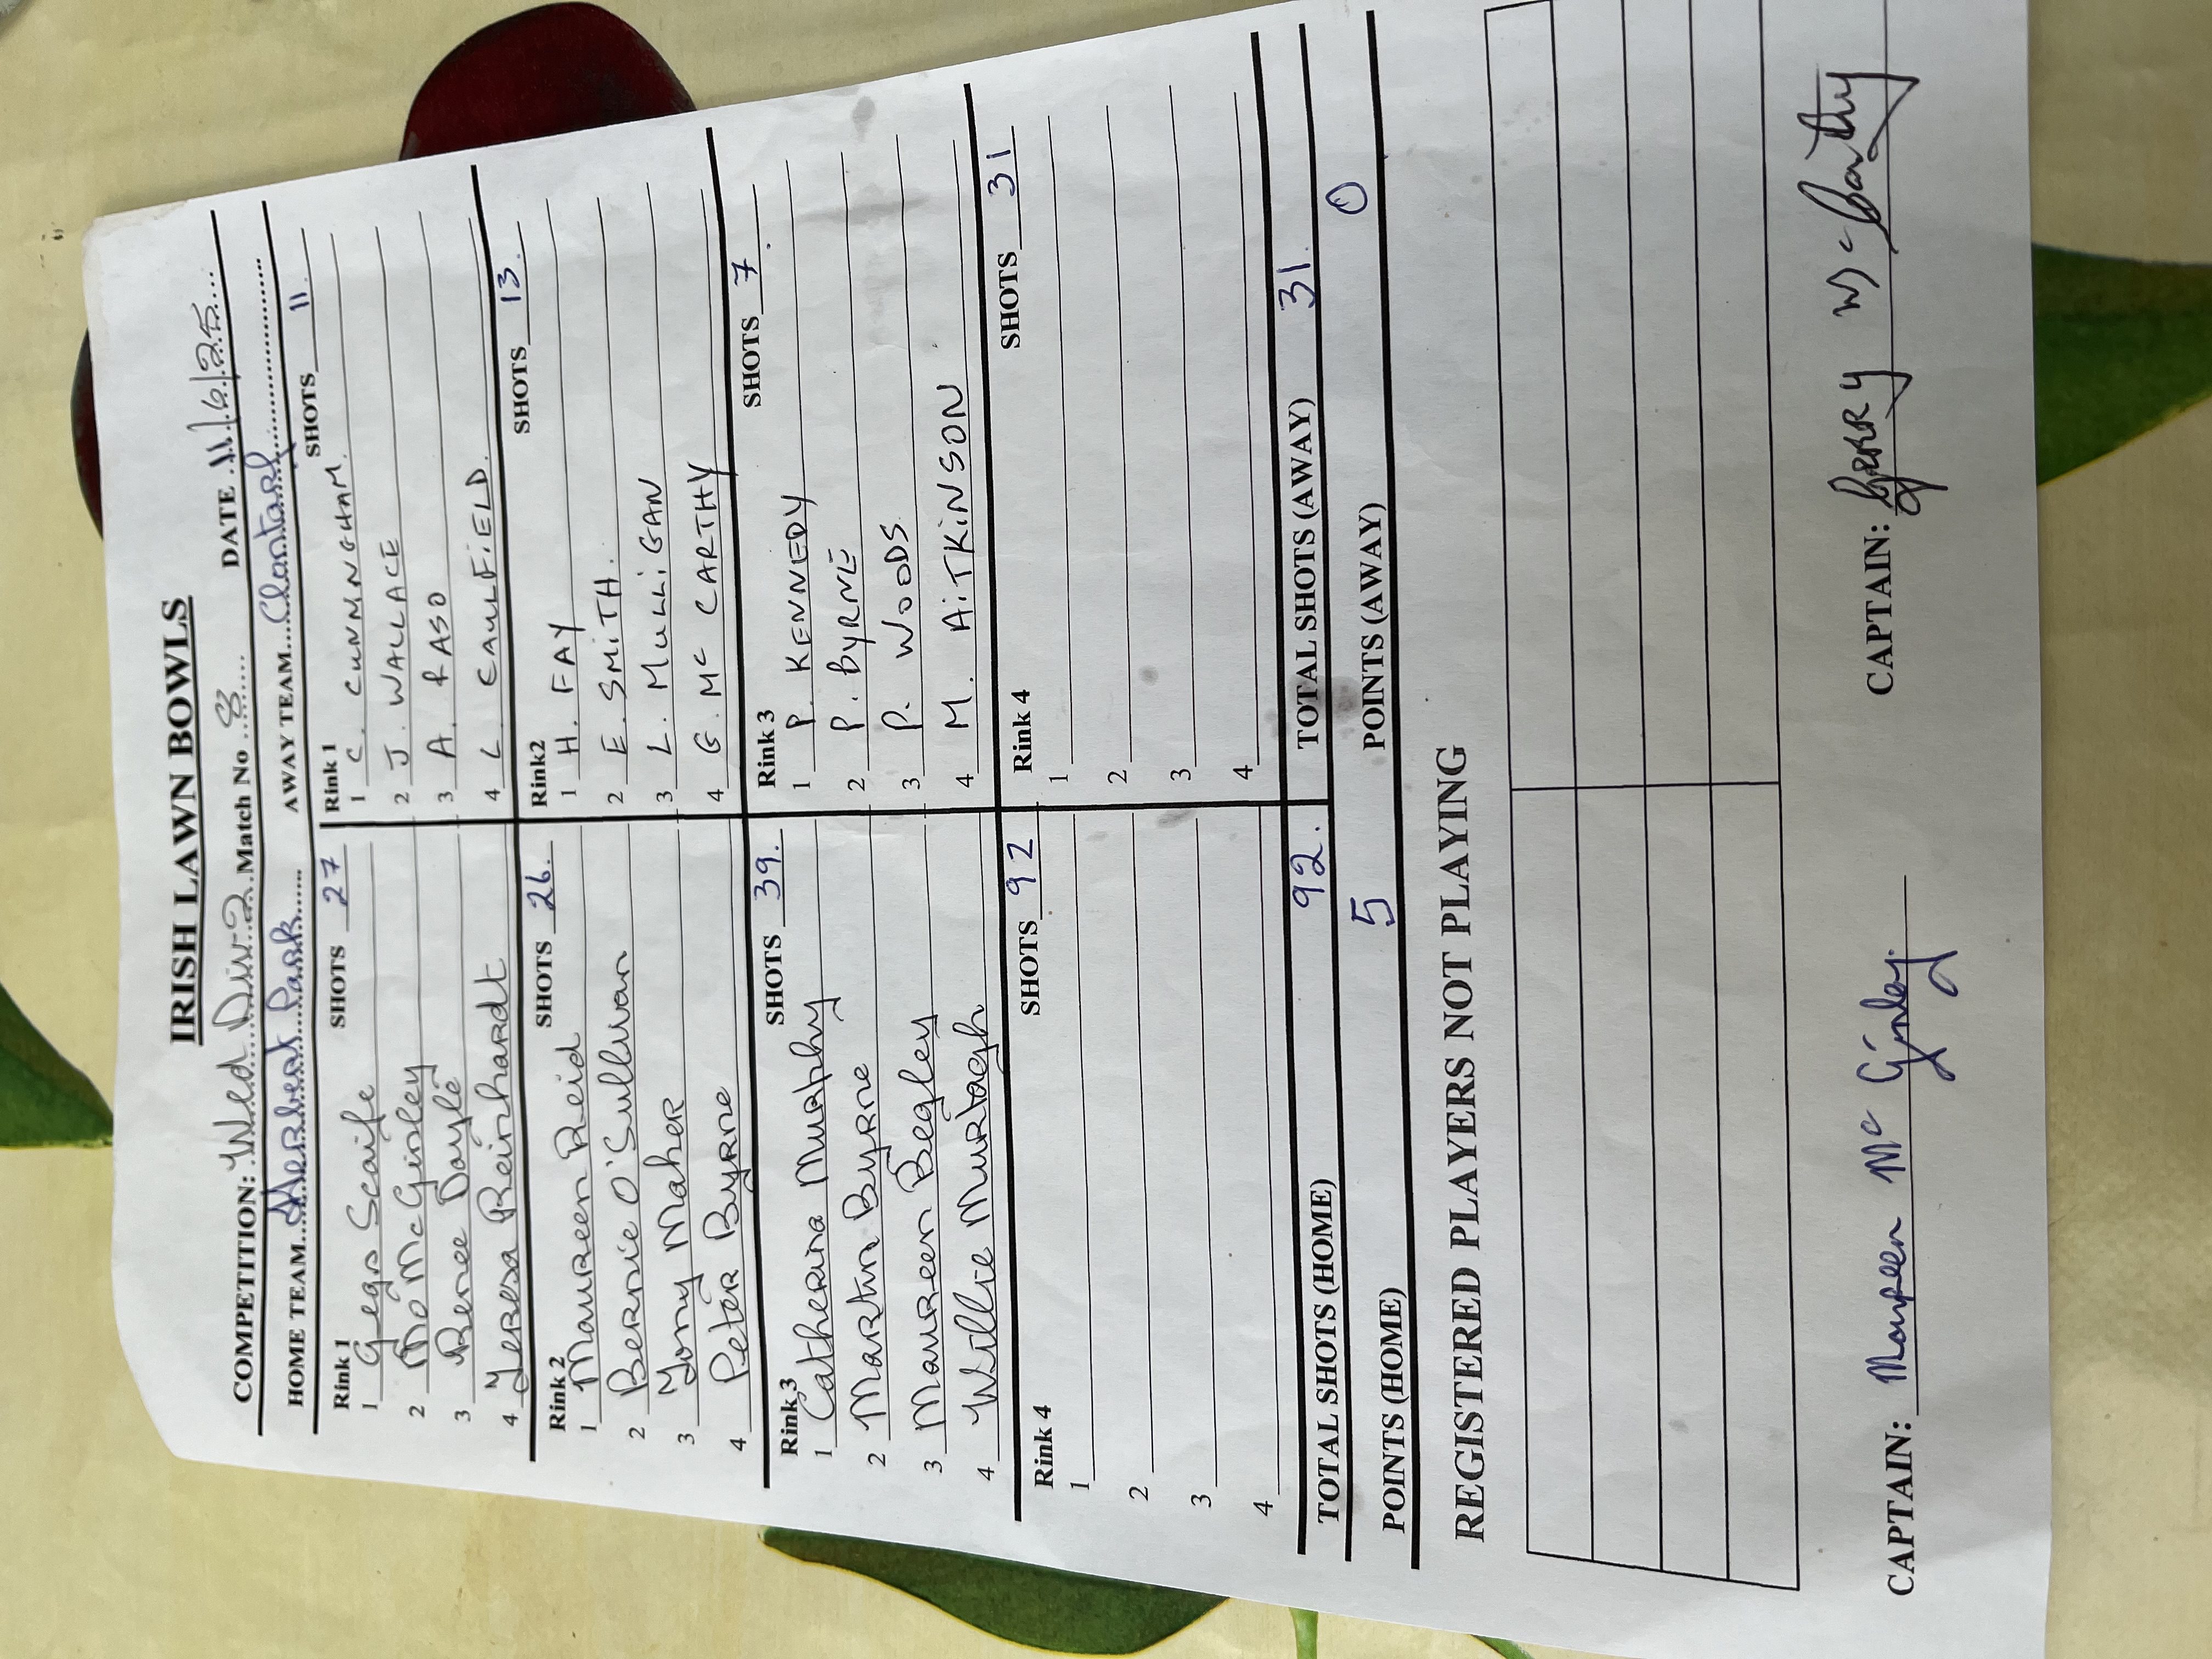 IRISH LAWN BOWLS
COMPETITION: Wed Div 2 Match No 8 DATE 11/6/25
HOME TEAM Herbert Park AWAY TEAM Clontarf
Rink 1 SHOTS 27
1 Gego Scaife
2 Mo McGinley
3 Renee Doyle
4 Teresa Reinhardt
Rink 1 SHOTS 11
1 C. CUNNINGHAM
2 J. WALLACE
3 A. RASO
4 L. CAULFIELD
Rink 2 SHOTS 26
1 Maureen Reid
2 Bernie O'Sullivan
3 Tony Maher
4 Peter Byrne
Rink2 SHOTS 13
1 H. FAY
2 E. SMITH
3 L. MULLIGAN
4 G. Mc CARTHY
Rink 3 SHOTS 39
1 Catherina Murphy
2 Martin Byrne
3 Maureen Begley
4 Willie Murtagh
Rink 3 SHOTS 7
1 P. KENNEDY
2 P. BYRNE
3 P. WOODS
4 M. AITKINSON
Rink 4 SHOTS 92
1
2
3
4
Rink 4 SHOTS 31
1
2
3
4
TOTAL SHOTS (HOME) 92. TOTAL SHOTS (AWAY) 31.
POINTS (HOME) 5 POINTS (AWAY) 0
REGISTERED PLAYERS NOT PLAYING
CAPTAIN: Maureen Mc Ginley CAPTAIN: Gerry McCarthy